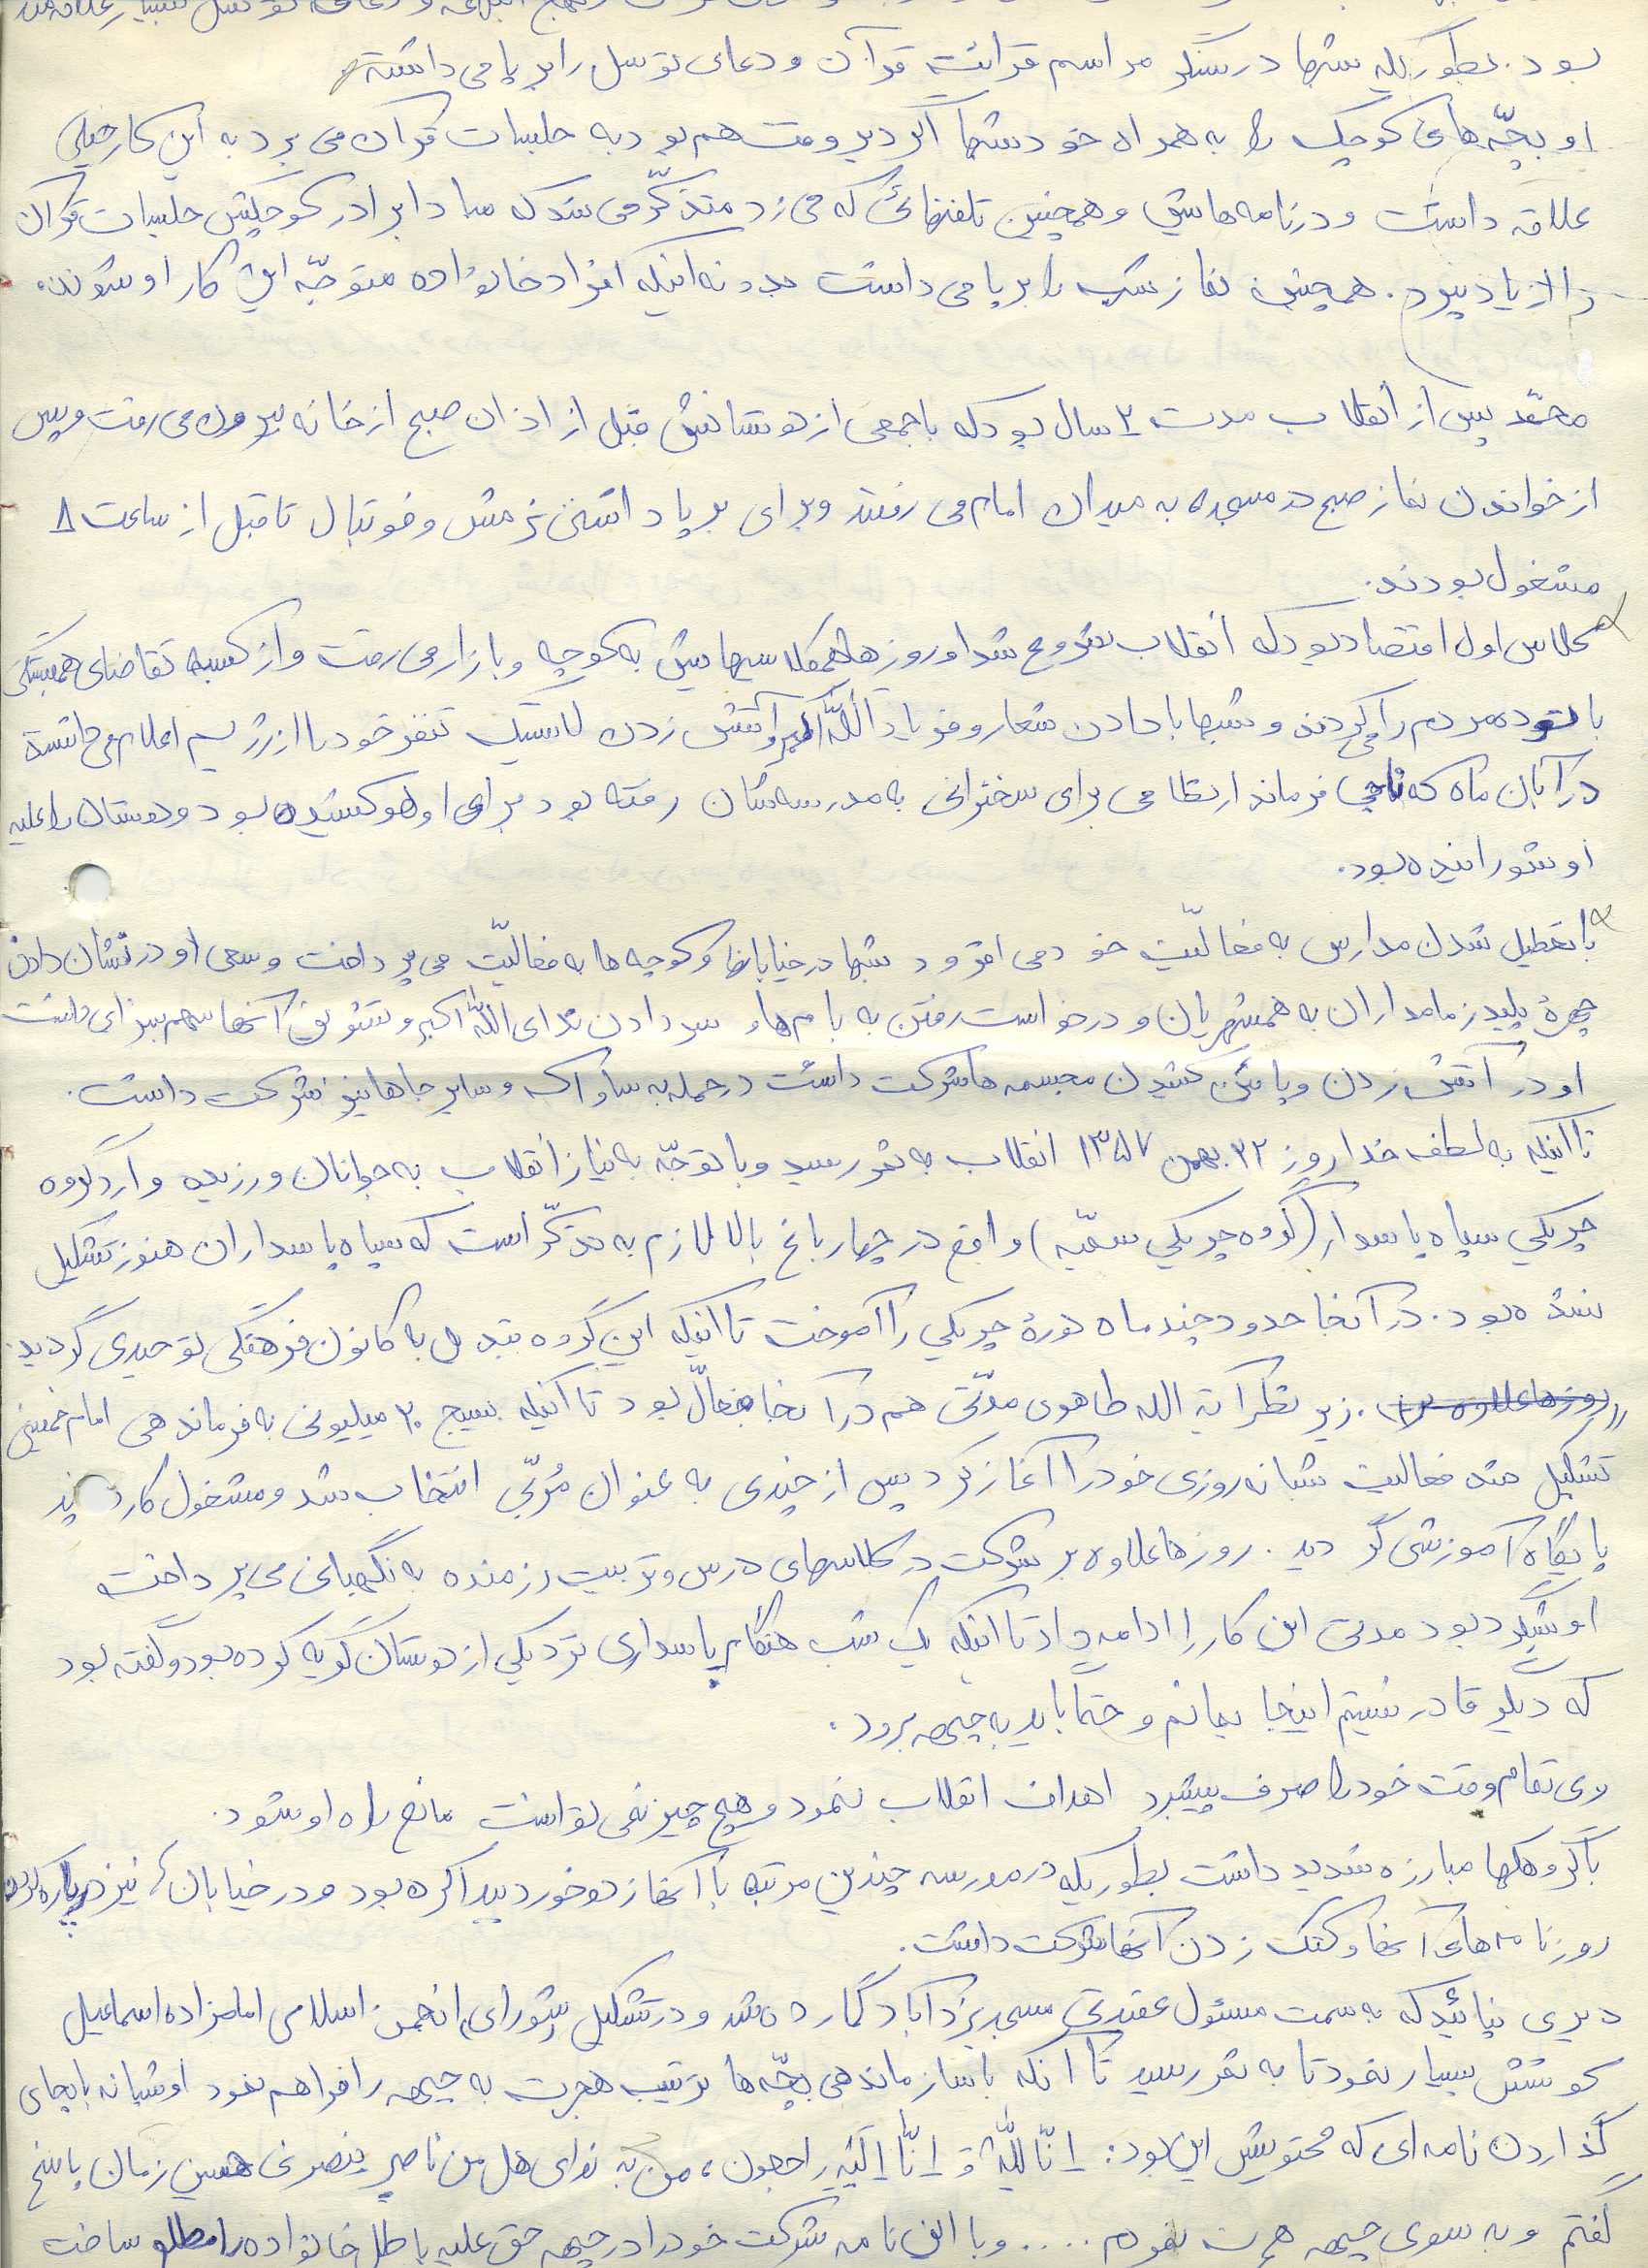 بود. بطوریکه شبها در سنگر مراسم قرائت قرآن و دعای توسل را برپا می داشته
او بچّه های کوچک را به همراه خود شبها اگر دیر وقت هم بود به جلسات قرآن می برد به این کار خیلی
علاقه داشت و در نامه هایش و همچنین تلفنهائی که می زد متذکّر می شد که مبادا برادر کوچکش جلسات قرآن
را از یاد ببرد. همچنین نماز شب را برپا می داشت بدونه اینکه افراد خانواده متوجّه این کار او شوند.
محمّد پس از انقلاب مدت ۲ سال بود که با جمعی از دوستانش قبل از اذان صبح از خانه بیرون می رفت و پس
از خواندن نماز صبح در مسجد به میدان امام می رفتند و برای برپا داشتن نرمش و فوتبال تا قبل از ساعت ۸
مشغول بودند.
کلاس اول اقتصاد بود که انقلاب شروع شد او روزها با همکلاسهایش به کوچه و بازار می رفت و از کسبه تقاضای همبستگی
با توده مردم را می کردند و شبها با دادن شعار و فریاد اللّه اکبر و آتش زدن لاستیک تنفر خود را از رژیم اعلام می داشته
در آبان ماه که ناجی فرماندار نظامی برای سخنرانی به مدرسه شان رفته بود برای او هو کشیده بود و دوستان را علیه
او شورانیده بود.
با تعطیل شدن مدارس به فعالیّت خود می افزود شبها در خیابانها و کوچه ها به فعالیّت می پرداخت و سعی او در نشان دادن
چهرهٔ پلید زمامداران به همشهریان و درخواست رفتن به بام ها و سر دادن ندای اللّه اکبر و تشویق آنها سهم بسزای داشت
او در آتش زدن و پائین کشیدن مجسمه ها شرکت داشت در حمله به ساواک و سایر جاها نیز شرکت داشت.
تا اینکه به لطف خدا روز ۲۲ بهمن ۱۳۵۷ انقلاب به ثمر رسید و با توجّه به نیاز انقلاب به جوانان ورزیده وارد گروه
چریکی سپاه پاسدار (گروه چریکی سمیّه) واقع در چهارباغ بالا لازم به تذکّر است که سپاه پاسداران هنوز تشکیل
نشده بود. در آنجا حدود چند ماه دورهٔ چریکی را آموخت تا اینکه این گروه تبدیل به کانون فرهنگی توحیدی گردید.
روزها علاوه بر زیر نظر آیة الله طاهری مدّتی هم در آنجا فعال بود تا اینکه بسیج ۲۰ میلیونی به فرماندهی امام خمینی
تشکیل شد فعالیت شبانه روزی خود را آغاز کرد پس از چندی به عنوان مُربّی انتخاب شد و مشغول کار در
پایگاه آموزشی گردید. روزها علاوه بر شرکت در کلاسهای درس و تربیت رزمنده به نگهبانی می پرداخت
او شبگرد بود مدتی این کار را ادامه داد تا اینکه یک شب هنگام پاسداری نزد یکی از دوستان گریه کرده بود و گفته بود
که دیگر قادر نیستم اینجا بمانم و حتماً باید به جبهه برود.
وی تمام وقت خود را صرف پیشبرد اهداف انقلاب نمود و هیچ چیز نمی توانست مانع راه او شود.
با گروهکها مبارزه شدید داشت بطوریکه در مدرسه چندین مرتبه با آنها زدوخورد پیدا کرده بود و در خیابان نیز در پاره کردن
روزنامه های آنها و کتک زدن آنها شرکت داشت.
دیری نپائید که به سمت مسئول عقیدتی مسجد یزدآباد گمارده شد و در تشکیل شورای انجمن اسلامی امامزاده اسماعیل
کوشش بسیار نمود تا به ثمر رسید تا آنکه با سازماندهی بچّه ها ترتیب هجرت به جبهه را فراهم نمود او شبانه با بجای
گذاردن نامه ای که محتویش این بود: اِنّا لِلّٰهِ وَ اِنّا اِلَیْهِ راجعون، من به ندای هل من ناصر ینصرنی حسین زمان پاسخ
گفتم و به سوی جبهه هجرت نمودم .... و با این نامه شرکت خود را در جبهه حق علیه باطل خانواده را مطلع ساخت